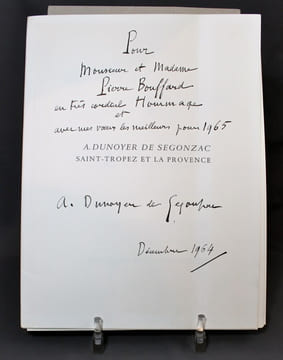 Pour
Monsieur et Madame
Pierre Bouffard
en très cordial Hommage
et
avec mes vœux les meilleurs pour 1965
A. DUNOYER DE SEGONZAC
SAINT-TROPEZ ET LA PROVENCE
A. Dunoyer de Segonzac
Décembre 1964